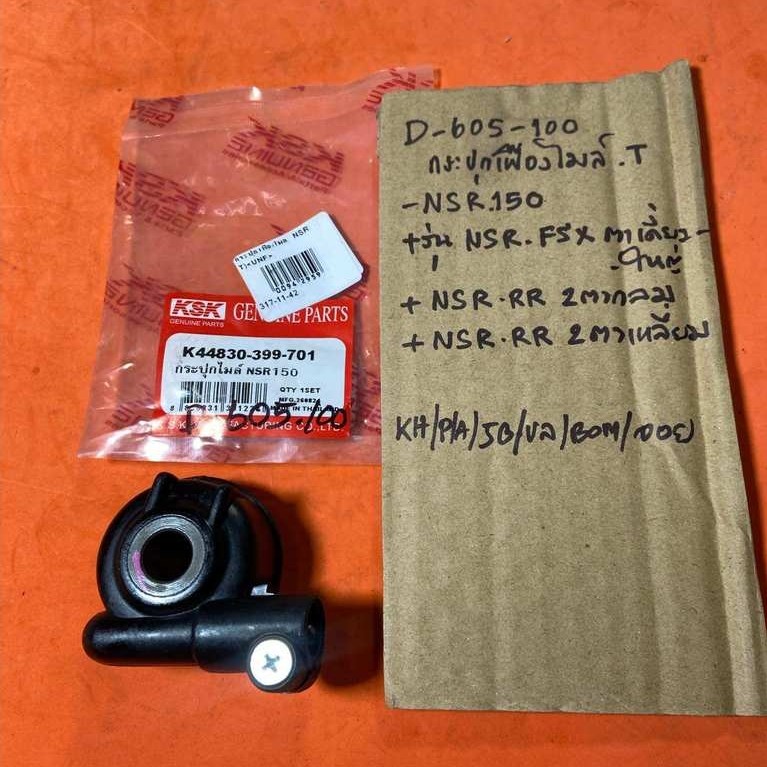 KSK
GENUINE
กระปุกเฟืองไมล์ NSR
T)<UNF>
00942959
317-11-42
KSK GENUINE PARTS
GENUINE PARTS
K44830-399-701
กระปุกไมล์ NSR150
QTY 1SET
MADE IN THAILAND
D-605-100
D-605-100
กระปุกเฟืองไมล์.T
-NSR.150
+รุ่น NSR.FSX ตาเดี่ยว-
ใหญ่
+ NSR.RR 2ตากลม
+ NSR.RR 2ตาเหลี่ยม
KH/P/A/JB/ขล/BOM/จอย